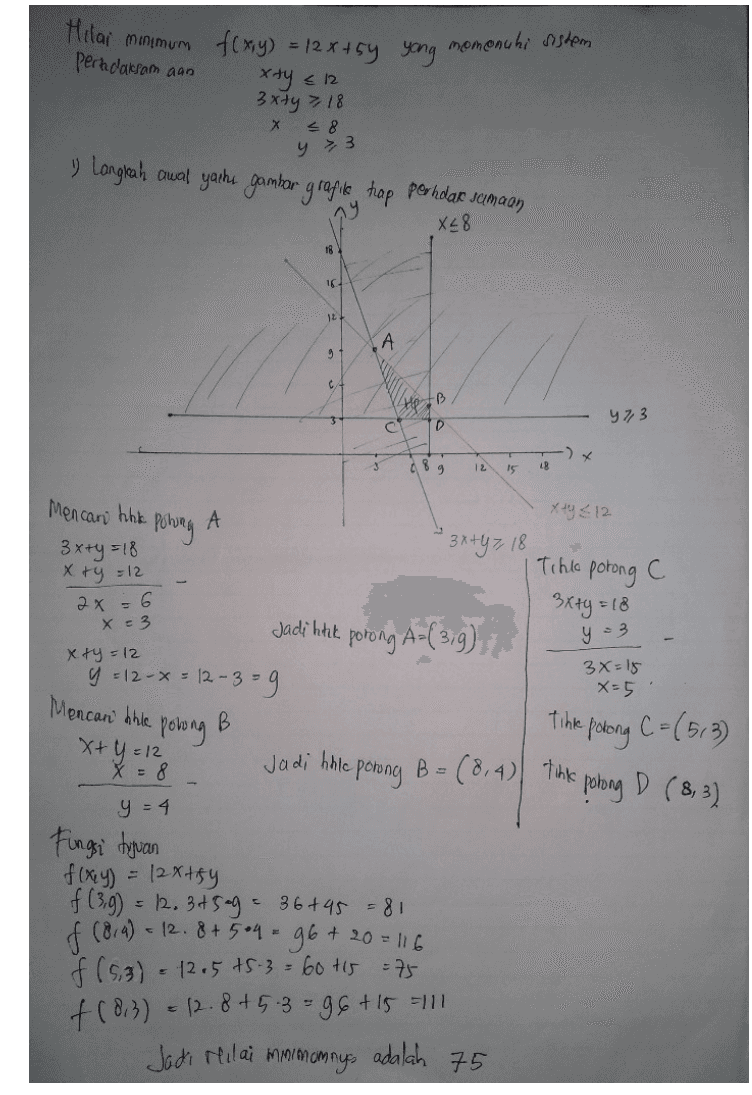 Nilai minimum f(x,y) = 12x+5y yang memenuhi sistem
pertidaksamaan x+y ≤ 12
3x+y ≥ 18
x ≤ 8
y ≥ 3
1) Langkah awal yaitu gambar grafik tiap pertidaksamaan
y
x≤8
18
16
12
9
A
6
HP
B
3
C
D
y ≥ 3
3
6
8
9
12
15
18
x
x+y≤12
3x+y≥18
Mencari titik potong A
3x+y=18
x+y=12
−
2x = 6
x = 3
x+y=12
y = 12-x = 12-3 = 9
Jadi titik potong A=(3,9)
Mencari titik potong B
x+y=12
x = 8
−
y = 4
Jadi titik potong B = (8,4)
Titik potong C
3x+y=18
y = 3
−
3x=15
x=5
Titik potong C = (5,3)
Titik potong D (8,3)
Fungsi tujuan
f(x,y) = 12x+5y
f(3,9) = 12.3+5•9 = 36+45 = 81
f(8,4) = 12.8+5•4 = 96+20=116
f(5,3) = 12•5+5.3 = 60+15 =75
f(8,3) = 12.8+5.3 = 96+15 =111
Jadi nilai minimumnya adalah 75